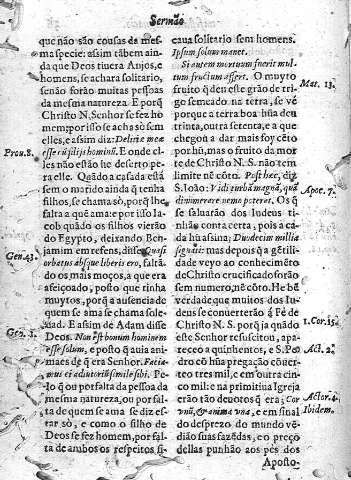 Sermão
que não são cousas da mes-
ma specie: assim tãbem ain-
da que Deos tiuera Anjos, e
homens, se achara solitario,
senão forão muitas pessoas
da mesma natureza. E porq̃
Christo N. Senhor se fez ho
mem; por isso se acha só sem
elles, e assim diz: Delitiæ meæ
esse cũ filijs hominũ. E onde el-
les não estão he deserto pe-
ra elle. Quãdo a casada está
sem o marido ainda q̃ tenha
filhos, se chama sò, porq̃ lhe
falta a quẽ ama: e por isso Ia-
cob quãdo os filhos vierão
do Egypto, deixando Ben-
jamim em refens, disse Quasi
orbatus absque liberis ero, faltã-
do os mais moços, a que era
afeiçoado, posto que tinha
muytos, porq̃ a ausencia de
quem se ama se chama sole-
dad. E assim de Adam disse
Deos. Non est bonum hominem
esse solum, e posto q̃ auia ani-
maes de q̃ era Senhor. Facia-
mus ei adiutoriũ simile sibi. Pe-
lo q̃ ou por falta da pessoa da
mesma natureza, ou por fal-
ta de quem se ama se diz es-
tar sò, e como o filho de
Deos se fez homem, por fal-
ta de ambos os respeitos fi-
Prou. 8.
Gen. 43.
Gen. 3.
caua solitario sem homens.
Ipsum solum manet.
Si autem mortuum fuerit mul-
tum fructum affert. O muyto
fruito q̃ den este grão de tri-
go semeado na terra, se vè
porque a terra boa hũa deu
trinta, outra setenta, e a que
chegou a dar mais foy cẽto
por hũ, mas o fruito da mor
te de Christo N. S. não tem
limite nẽ cõto. Post hæc, diz
S. Ioão: Vidi turbã magnã, quã
dinumerare nemo poterat. Os q̃
se saluarão dos Iudeus ti-
nhão conta certa, pois a ca-
da hũ assina: Duodecim millia
signati: mas depois q̃ a gẽtili-
dade veyo ao conhecimẽto
de Christo crucificado forão
sem numero, nẽ cõto. He bẽ
verdade que muitos dos Iu-
deus se conuerterão á Fè de
Christo N. S. porq̃ ja quãdo
este Senhor resuscitou, apa-
receo a quinhentos, e S. Pe-
dro cõ hũa prègação cõuer-
teo tres mil, e em outra cin-
co mil: e na primitiua Igreja
erão tão deuotos q̃ era; Cor
vnũ, & anima vna, e em sinal
do desprezo do mundo vẽ-
dião suas fazẽdas, e o preço
dellas punhão aos pès dos
Aposto-
Mat. 13.
Apoc. 7.
1. Cor. 15.
Act. 2.
Actor. 4.
Ibidem.